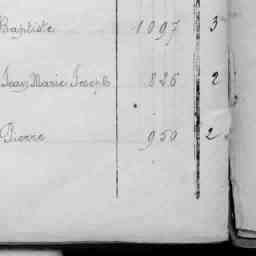 Baptiste 1097 3
Jean Marie Joseph 826 2
Pierre 950 2